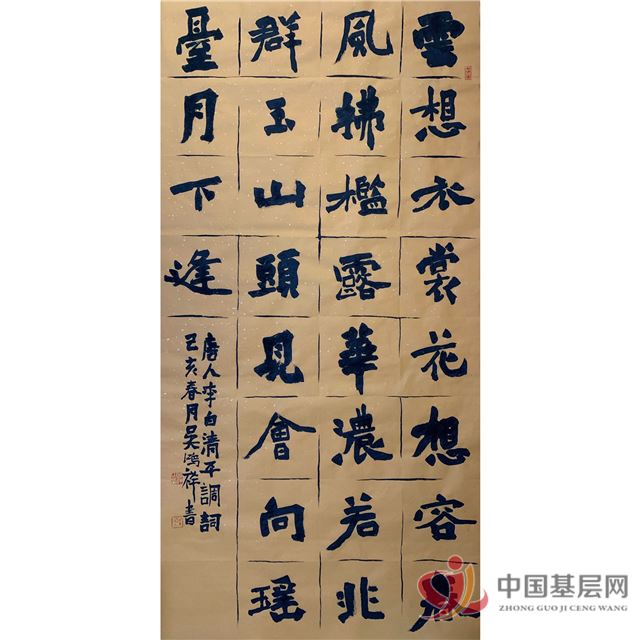 雲想衣裳花想容春
風拂檻露華濃若非
群玉山頭見會向瑤
臺月下逢
唐人李白清平調詞
己亥春月吴鸿祥書
中国基层网
ZHONG GUO JI CENG WANG